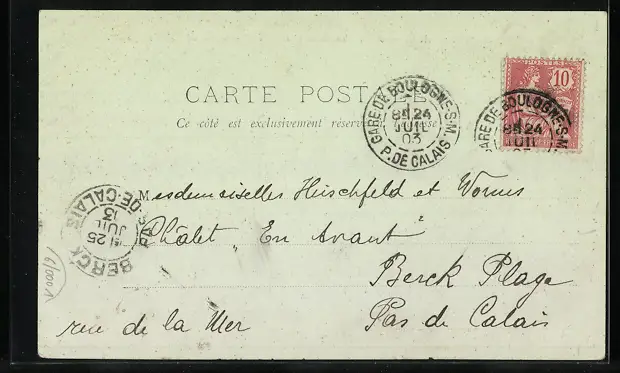 CARTE POSTALE
Ce côté est exclusivement réservé
POSTES
10
GARE DE BOULOGNE-S-M.
8E 24
JUIL
03
P. DE CALAIS
GARE DE BOULOGNE-S-M.
8E 24
JUIL
03
BERCK
25
JUIL
PAS-DE-CALAIS
Mesdemoiselles Hirschfeld et Worms
Châlet „En Avant"
Berck Plage
rue de la Mer
Pas de Calais